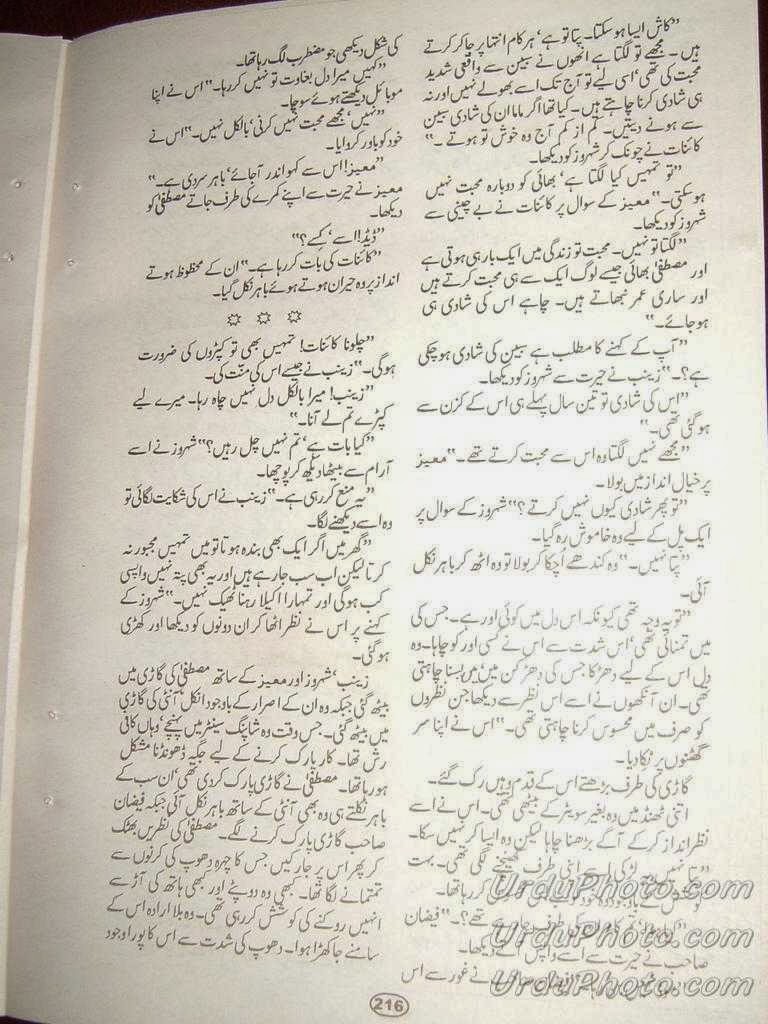 ”کاش ایسا ہو سکتا۔ پتا تو ہے‘ ہر کام انتہا پر جا کر کرتے
ہیں۔ مجھے تو لگتا ہے انھوں نے سبین سے واقعی شدید
محبت کی تھی‘ اسی لیے تو آج تک اسے بھولے نہیں اور نہ
ہی شادی کرنا چاہتے ہیں۔ کیا تھا اگر ماما ان کی شادی سبین
سے ہونے دیتیں۔ کم از کم آج وہ خوش تو ہوتے۔“
کائنات نے چونک کر شہروز کو دیکھا۔
”تو تمہیں کیا لگتا ہے‘ بھائی کو دوبارہ محبت نہیں
ہو سکتی۔“ معیز کے سوال پر کائنات نے بے چینی سے
شہروز کو دیکھا۔
”لگتا تو نہیں۔ محبت تو زندگی میں ایک بار ہی ہوتی ہے
اور مصطفیٰ بھائی جیسے لوگ ایک سے ہی محبت کرتے ہیں
اور ساری عمر نبھاتے ہیں۔ چاہے اس کی شادی ہی
ہو جائے۔“
”آپ کے کہنے کا مطلب ہے سبین کی شادی ہو چکی
ہے؟“ زینب نے حیرت سے شہروز کو دیکھا۔
”اس کی شادی تو تین سال پہلے ہی اس کے کزن سے
ہو گئی تھی۔“
”مجھے نہیں لگتا وہ اس سے محبت کرتے تھے۔“ معیز
پر خیال انداز میں بولا۔
”تو پھر شادی کیوں نہیں کرتے؟“ شہروز کے سوال پر
ایک پل کے لیے وہ خاموش رہ گیا۔
”پتا نہیں۔“ وہ کندھے اُچکا کر بولا تو وہ اٹھ کر باہر نکل
آئی۔
”تو یہ وجہ تھی کیونکہ اس دل میں کوئی اور ہے۔ جس کی
میں تمنائی تھی‘ اس شدت سے اس نے کسی اور کو چاہا۔ وہ
دل اس کے لیے دھڑکا جس کی دھڑکن میں‘ میں بسنا چاہتی
تھی۔ ان آنکھوں نے اسے اس نظر سے دیکھا جن نظروں
کو صرف میں محسوس کرنا چاہتی تھی۔“ اس نے اپنا سر
گھٹنوں پر ٹکا دیا۔
گاڑی کی طرف بڑھتے اس کے قدم وہیں رک گئے۔
اتنی ٹھنڈ میں وہ بغیر سویٹر کے بیٹھی تھی۔ اس نے اسے
نظر انداز کر کے آگے بڑھنا چاہا لیکن وہ ایسا کر نہیں سکا۔
”پتا نہیں یہ لڑکی اسے اپنی طرف کھینچنے لگی تھی۔ بہت
کوشش کے باوجود وہ خود کر رہا تھا۔
کی طرف جا رہے تھے؟“ فیضان
صاحب نے حیرت سے اسے واپس آتے دیکھا۔
نے غور سے اس
کی شکل دیکھی جو مضطرب لگ رہا تھا۔
”کہیں میرا دل بغاوت تو نہیں کر رہا۔“ اس نے اپنا
موبائل دیکھتے ہوئے سوچا۔
”نہیں‘ مجھے محبت نہیں کرنی‘ بالکل نہیں۔“ اس نے
خود کو باور کروایا۔
”معیز! اس سے کہو اندر آجائے‘ باہر سردی ہے۔“
معیز نے حیرت سے اپنے کمرے کی طرف جاتے مصطفیٰ کو
دیکھا۔
”ڈیڈ! اسے‘ کِسے؟“
”کائنات کی بات کر رہا ہے۔“ ان کے محظوظ ہوتے
انداز پر وہ حیران ہوتے ہوئے باہر نکل گیا۔
☼ ☼ ☼
”چلو نا کائنات! تمہیں بھی تو کپڑوں کی ضرورت
ہو گی۔“ زینب نے جیسے اس کی منت کی۔
”زینب! میرا بالکل دل نہیں چاہ رہا۔ میرے لیے
کپڑے تم لے آنا۔“
”کیا بات ہے‘ تم نہیں چل رہیں؟“ شہروز نے اسے
آرام سے بیٹھا دیکھ کر پوچھا۔
”یہ منع کر رہی ہے۔“ زینب نے اس کی شکایت لگائی تو
وہ اسے دیکھنے لگا۔
”گھر میں اگر ایک بھی بندہ ہوتا تو میں تمہیں مجبور نہ
کرتا لیکن اب سب جا رہے ہیں اور یہ بھی پتہ نہیں واپسی
کب ہو گی اور تمہارا اکیلا رہنا ٹھیک نہیں۔“ شہروز کے
کہنے پر اس نے نظر اٹھا کر ان دونوں کو دیکھا اور کھڑی
ہو گئی۔
زینب‘ شہروز اور معیز کے ساتھ مصطفیٰ کی گاڑی میں
بیٹھ گئی جبکہ وہ ان کے اصرار کے باوجود انکل آنٹی کی گاڑی
میں بیٹھ گئی۔ جس وقت وہ شاپنگ سینٹر میں پہنچے‘ وہاں کافی
رش تھا۔ کار پارک کرنے کے لیے جگہ ڈھونڈنا مشکل
ہو رہا تھا۔ مصطفیٰ نے گاڑی پارک کر دی تھی‘ ان سب کے
باہر نکلتے ہی وہ بھی آنٹی کے ساتھ باہر نکل آئی جبکہ فیضان
صاحب گاڑی پارک کرنے لگے۔ مصطفیٰ کی نظریں بھٹک
کر پھر اس پر جا رکیں جس کا چہرہ دھوپ کی کرنوں سے
تمتمانے لگا تھا۔ کبھی وہ دوپٹے اور کبھی ہاتھ کی آڑ سے
انہیں روکنے کی کوشش کر رہی تھی۔ وہ بلا ارادہ اس کے
سامنے جا کھڑا ہوا۔ دھوپ کی شدت سے اس کا پورا وجود
216
UrduPhoto.com
UrduPhoto.com
UrduPhoto.com